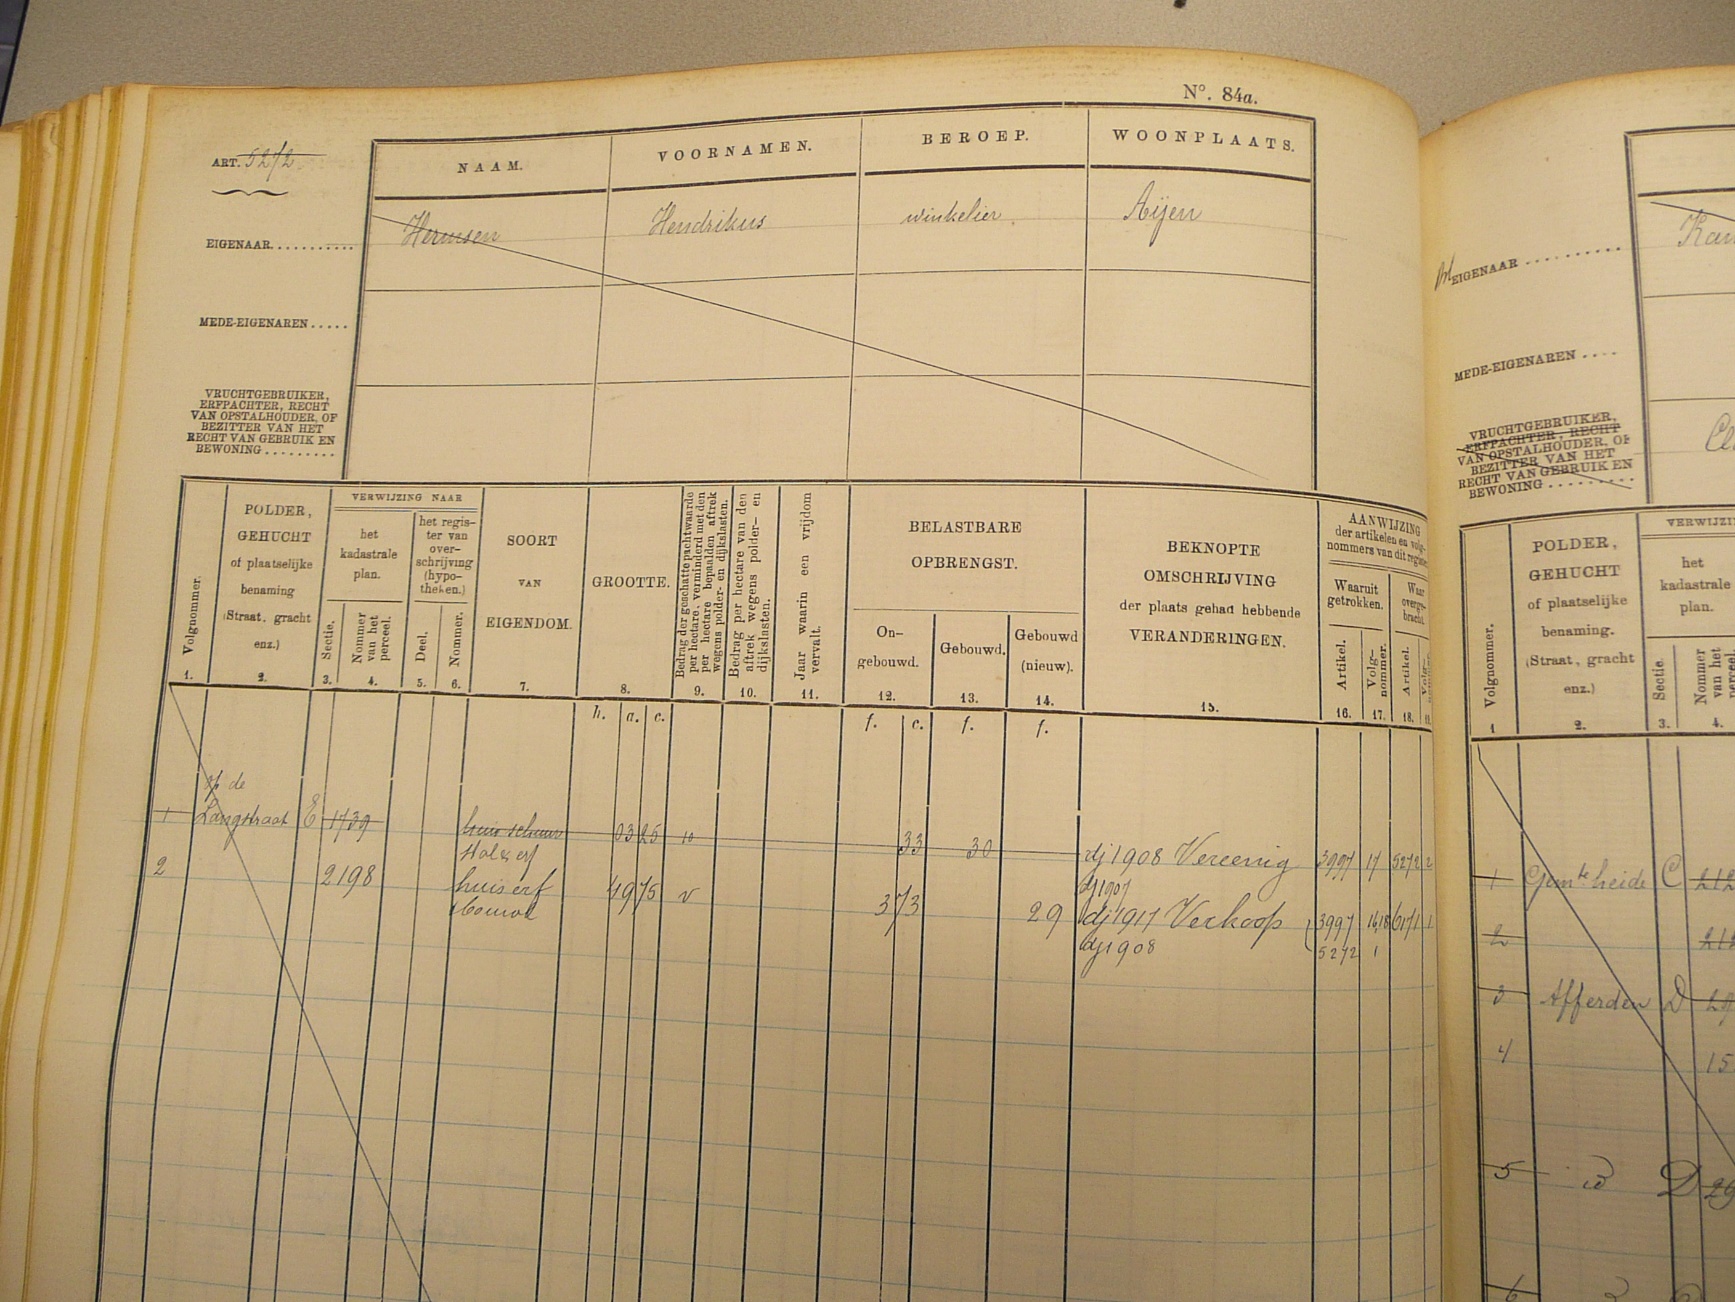 Nº. 84a.
ART. 5272
NAAM. VOORNAMEN. BEROEP. WOONPLAATS.
EIGENAAR........... Hermsen Hendrikus winkelier. Aijen
MEDE-EIGENAREN.....
VRUCHTGEBRUIKER,
ERFPACHTER, RECHT
VAN OPSTALHOUDER, OF
BEZITTER VAN HET
RECHT VAN GEBRUIK EN
BEWONING.........
Volgnommer.
1.
POLDER,
GEHUCHT
of plaatselijke
benaming
(Straat, gracht
enz.)
2.
VERWIJZING NAAR
het
kadastrale
plan.
Sectie.
3.
Nommer
van het
perceel.
4.
het regis-
ter van
over-
schrijving
(hypo-
theken.)
Deel.
5.
Nommer.
6.
SOORT
VAN
EIGENDOM.
7.
GROOTTE.
8.
Bedrag der geschatte pachtwaarde
per hectare, verminderd met den
per hectare bepaalden aftrek
wegens polder- en dijkslasten.
9.
Bedrag per hectare van den
aftrek wegens polder- en
dijkslasten.
10.
Jaar waarin een vrijdom
vervalt.
11.
BELASTBARE
OPBRENGST.
On-
gebouwd.
12.
Gebouwd.
13.
Gebouwd
(nieuw).
14.
BEKNOPTE
OMSCHRIJVING
der plaats gehad hebbende
VERANDERINGEN.
15.
AANWIJZING
der artikelen en volg-
nommers van dit register
Waaruit
getrokken.
Artikel.
16.
Volg-
nommer.
17.
Waar
Artikel.
18.
h. a. c. f. c. f. f.
op de
1 Langstraat E 1739 huis schuur 03 25 10 33 30 dj 1908 Vereenig 3997 17 5272 2
stal & erf
2 2198 huis erf 49 75 v 3 73 29 dj 1917 Verkoop 3997 16,18 6171 1
dj 1907
bouwl dj 1908 5272 1
EIGENAAR..........
MEDE-EIGENAREN....
VRUCHTGEBRUIKER,
ERFPACHTER, RECHT
VAN OPSTALHOUDER, OF
BEZITTER VAN HET
RECHT VAN GEBRUIK EN
BEWONING.........
Volgnommer.
1
POLDER,
GEHUCHT
of plaatselijke
benaming.
(Straat, gracht
enz.)
2.
het
kadastrale
plan.
Sectie.
3.
Nommer
van het
4.
1 Gemte heide C
2
3 Afferden D
4
5 D
6